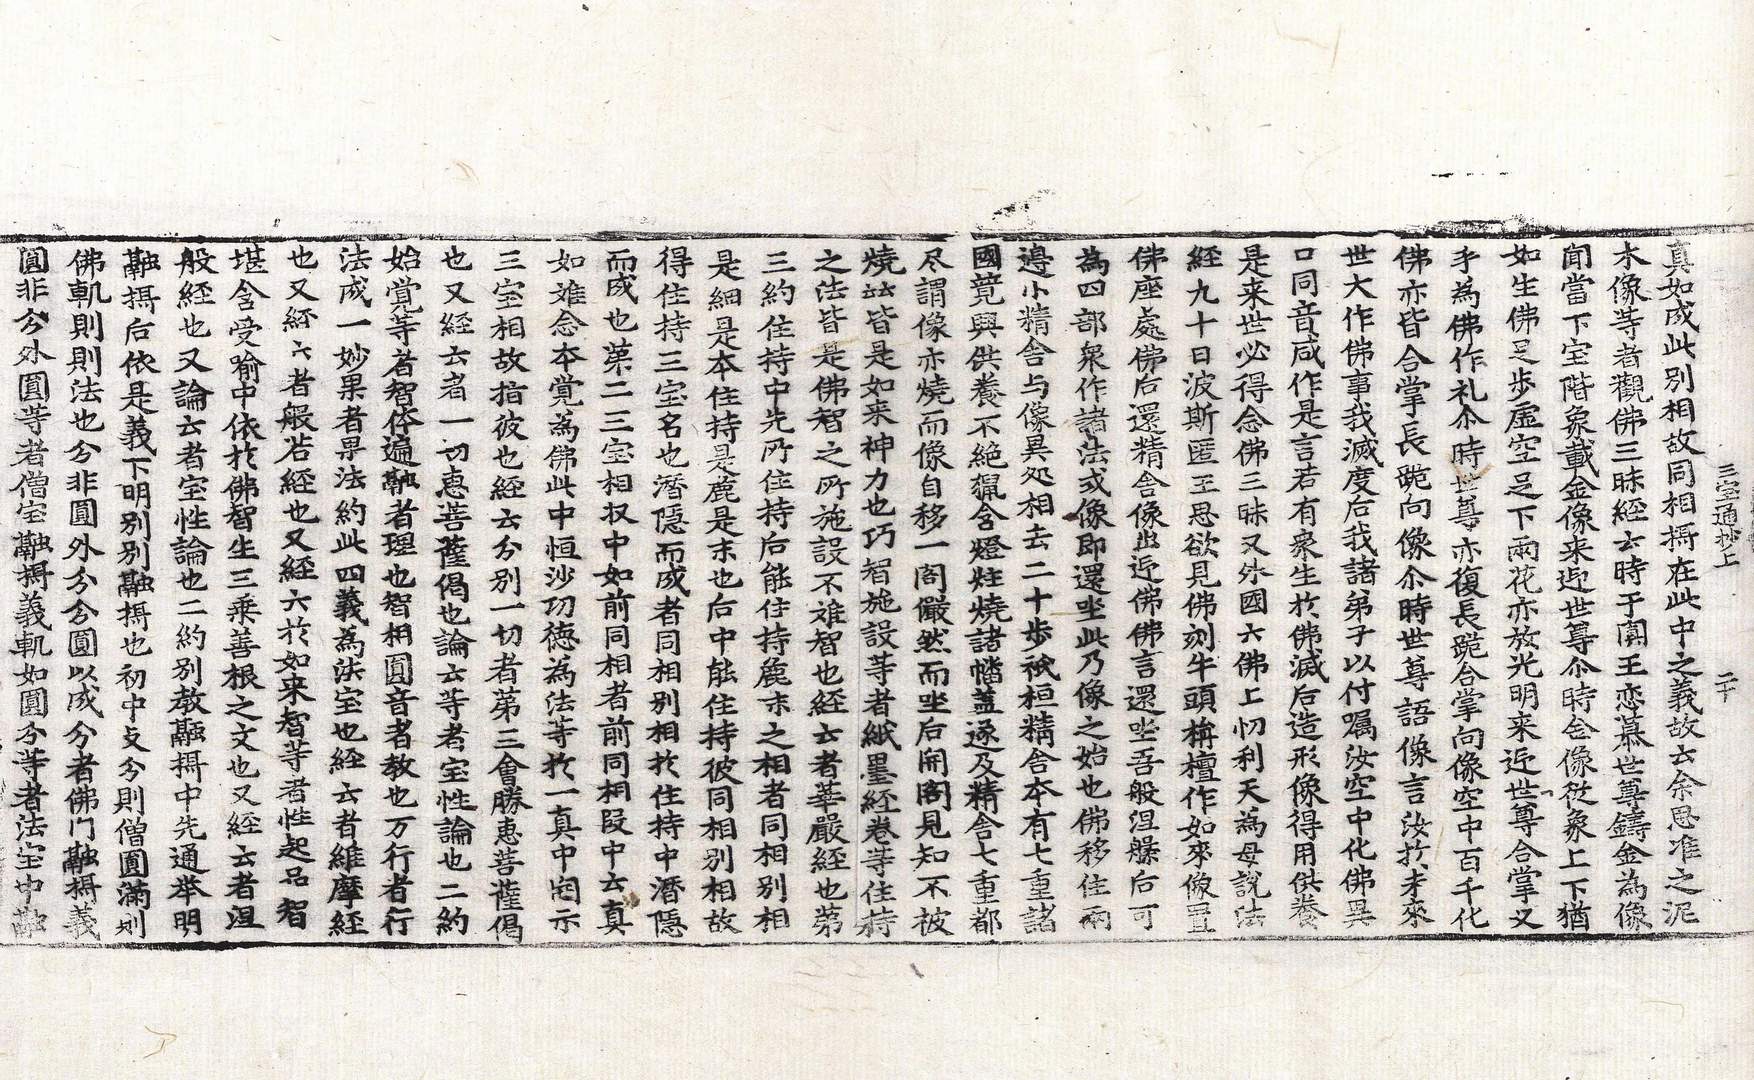 三宝通抄上　二十
真如成此别相故同相攝在此中之義故云余思准之泥
木像等者觀佛三昧經云時于闐王恋慕世尊鑄金為像
聞當下宝階象載金像来迎世尊尒時金像從象上下猶
如生佛足步虛空足下雨花亦放光明来迎世尊合掌叉
手為佛作礼尒時世尊亦復長跪合掌向像空中百千化
佛亦皆合掌長跪向像尒時世尊語像言汝於未來
世大作佛事我滅度后我諸弟子以付嘱汝空中化佛異
口同音咸作是言若有衆生於佛滅后造形像得用供養
是来世必得念佛三昧又外國六佛上忉利天為母說法
經九十日波斯匿王思欲見佛刻牛頭栴檀作如來像置
佛座處佛后還精舍像出迎佛佛言還坐吾般涅槃后可
為四部衆作諸法或像即還坐此乃像之始也佛移住兩
邉小精舍与像異処相去二十步祇桓精舍本有七重諸
國競興供養不絶獵含燈炷燒諸幡盖遂及精舍七重都
尽謂像亦燒而像自移一閣儼然而坐后開閣見知不被
燒㘴皆是如来神力也巧智施設等者紙墨經卷等住持
之法皆是佛智之所施設不难智也經云者華嚴經也第
三約住持中先所住持后能住持麁末之相者同相别相
是細是本住持是麁是末也后中能住持彼同相别相故
得住持三宝名也潛隱而成者同相别相於住持中潛隱
而成也第二三宝相収中如前同相者前同相段中云真
如难念本覚為佛此中恒沙功徳為法等於一真中囼示
三宝相故指彼也經云分别一切者第三會勝惠菩薩偈
也又經云者一切恵菩薩偈也論云等者宝性論也二約
始覚等者智体遍融者理也智相圓音者教也万行者行
法成一妙果者果法約此四義為法宝也經云者維摩經
也又經云者般若經也又經六於如来智等者性起品智
堪含受喻中依於佛智生三乘善根之文也又經云者涅
般經也又論云者宝性論也二約别教融攝中先通举明
融攝后依是義下明别别融攝也初中攴分則僧圓滿則
佛軌則則法也分非圓外分分圓以成分者佛門融攝義
圓非分外圓等者僧宝融攝義軌如圓分等者法宝中融